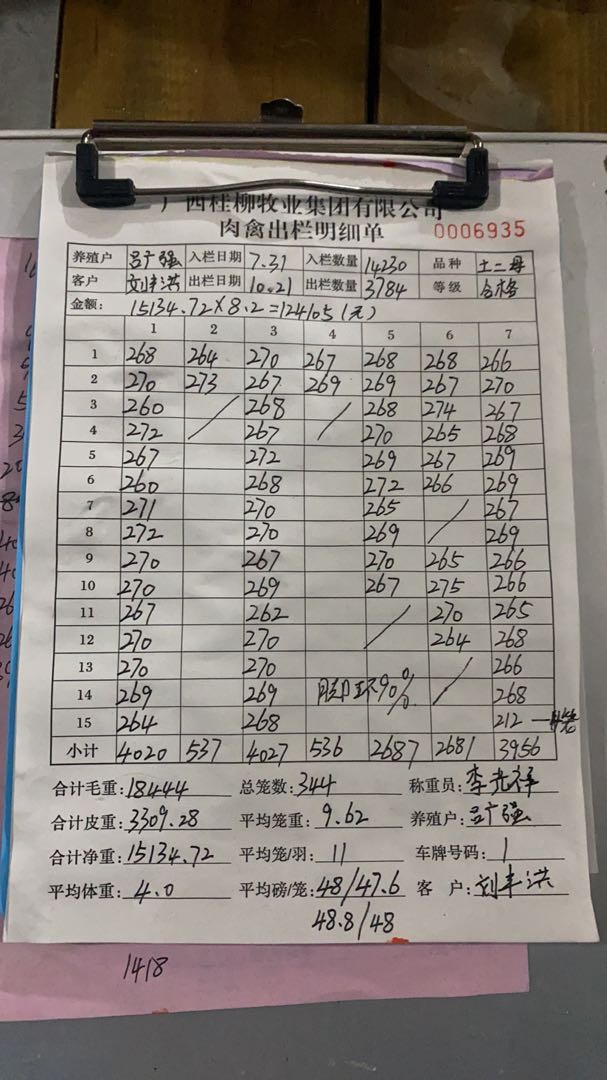 广西桂柳牧业集团有限公司
肉禽出栏明细单 0006935
养殖户 吕广强 入栏日期 7.31 入栏数量 14230 品种 土二母
客户 刘丰洪 出栏日期 10.21 出栏数量 3784 等级 合格
金额: 15134.72×8.2=124105(元)
1 2 3 4 5 6 7
1 268 264 270 267 268 268 266
2 270 273 267 269 269 267 270
3 260 268 268 274 267
4 272 267 270 265 268
5 267 272 269 267 269
6 260 268 272 266 269
7 271 270 265 267
8 272 270 269 269
9 270 267 270 265 266
10 270 269 267 275 266
11 267 262 270 265
12 270 270 264 268
13 270 270 266
14 269 269 脚环90% 268
15 264 268 212
小计 4020 537 4027 536 2687 2681 3956
合计毛重: 18444 总笼数: 344 称重员: 李光祥
合计皮重: 3309.28 平均笼重: 9.62 养殖户: 吕广强
合计净重: 15134.72 平均笼/羽: 11 车牌号码: 1
平均体重: 4.0 平均磅/笼: 48/47.6 客户: 刘丰洪
48.8/48
1418